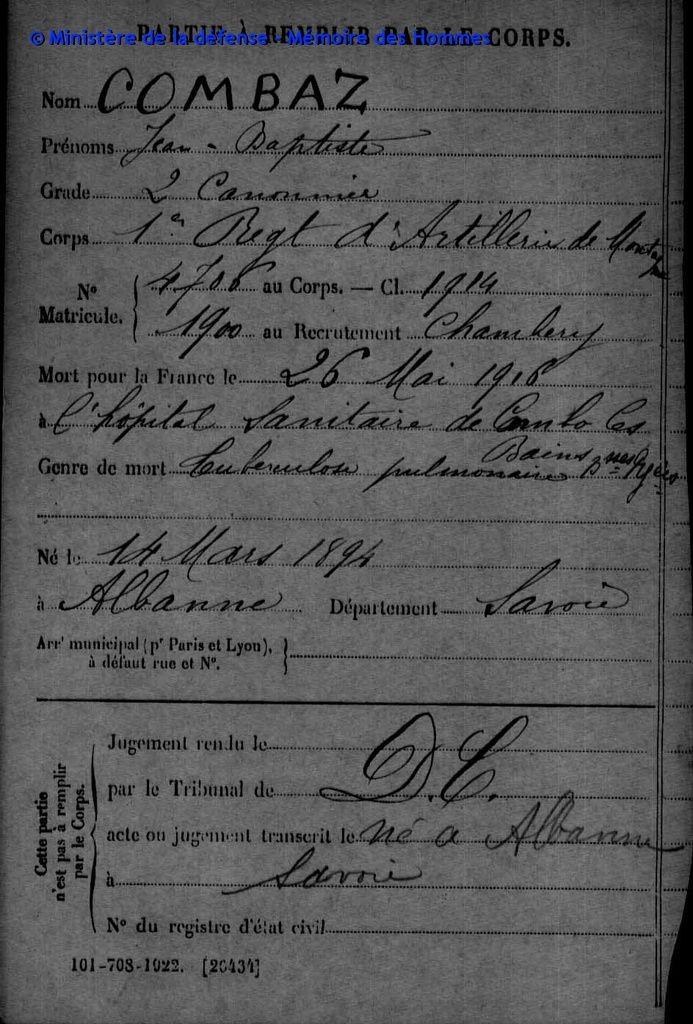 PARTIE À REMPLIR PAR LE CORPS.
© Ministère de la défense - Mémoire des Hommes
Nom COMBAZ
Prénoms Jean - Baptiste
Grade 2 Canonnier
Corps 1er Regt d'Artillerie de Montagne
N° Matricule. 4706 au Corps. — Cl. 1914
1900 au Recrutement Chambery
Mort pour la France le 26 Mai 1916
à l'hôpital Sanitaire de Cambo les
Bains Bses Pyrées
Genre de mort tuberculose pulmonaire
Né le 14 Mars 1894
à Albanne Département Savoie
Arrt municipal (pr Paris et Lyon),
à défaut rue et N°.
Cette partie n'est pas à remplir par le Corps.
Jugement rendu le
par le Tribunal de D.C.
acte ou jugement transcrit le né à Albanne
à Savoie
N° du registre d'état civil
101-708-1922. [26434]